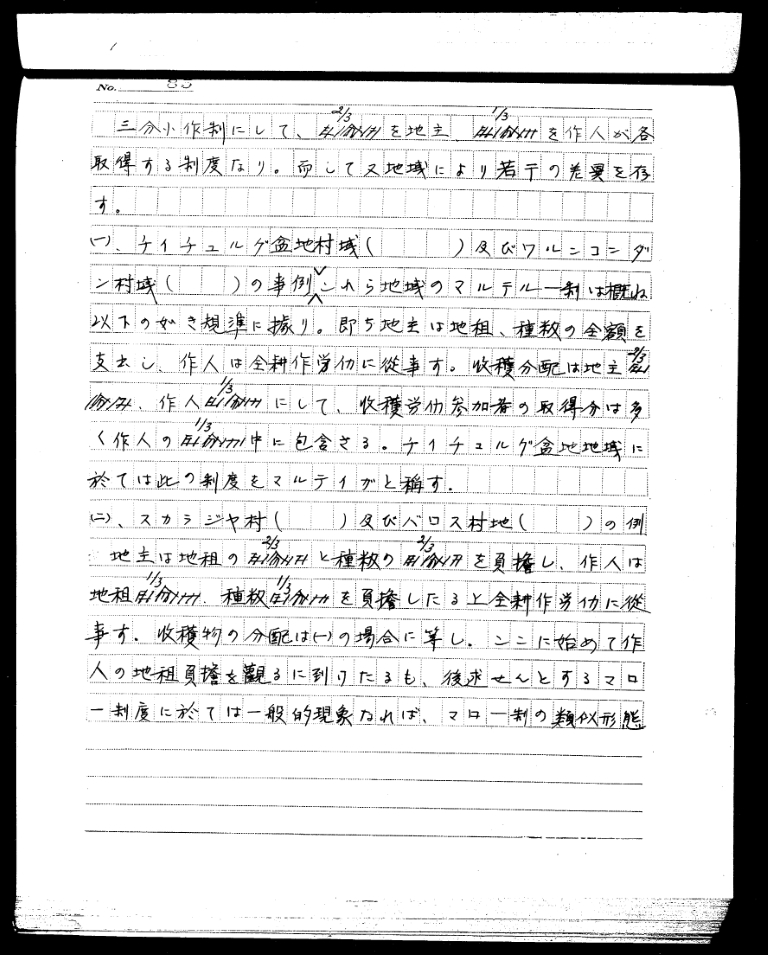 No. 85
三分小作制にして、2/3を地主、1/3を作人が各
取得する制度なり。而して又地域により若干の差異を存
す。
(一)、チイチュルゲ盆地村域(　　)及びワルンコンダ
ン村域(　　)の事例 これら地域のマルテルー制は概ね
以下の如き規準に據り。即ち地主は地租、種数の全額を
支出し、作人は全耕作労仂に從事す。收穫分配は地主2/3
、作人1/3にして、收穫労仂参加者の取得分は多
く作人の1/3中に包含さる。チイチュルゲ盆地地域に
於ては此の制度をマルテイガと稱す.
(二)、スカラジヤ村(　　)及びバロス村地(　　)の例
地主は地租の2/3と種数の2/3を負擔し、作人は
地租1/3、種数1/3を負擔したると全耕作労仂に從
事す。收穫物の分配は(一)の場合に等し.ここに始めて作
人の地租負擔を觀るに到りたるも、後求せんとするマロ
ー制度に於ては一般的現象なれば、マロー制の類似形態